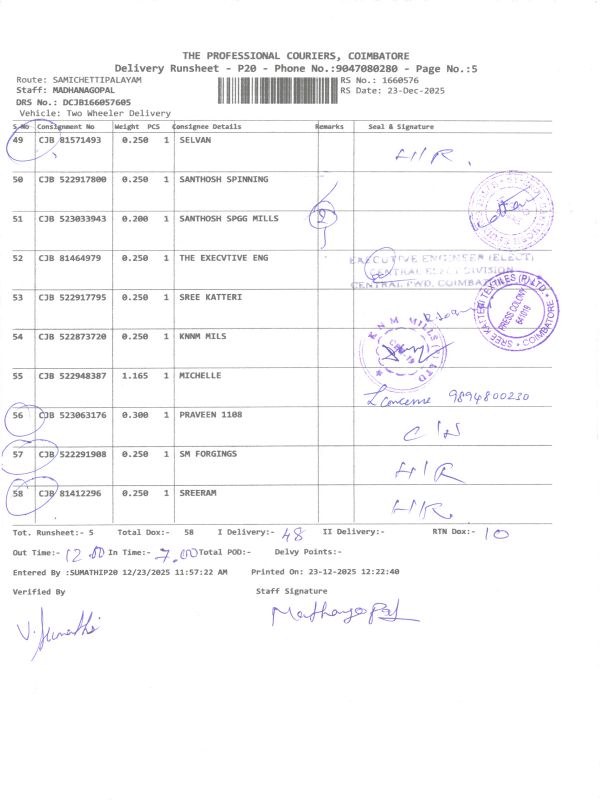 THE PROFESSIONAL COURIERS, COIMBATORE
Delivery Runsheet - P20 - Phone No.:9047080280 - Page No.:5
Route: SAMICHETTIPALAYAM RS No.: 1660576
Staff: MADHANAGOPAL RS Date: 23-Dec-2025
DRS No.: DCJB166057605
Vehicle: Two Wheeler Delivery
S.No Consignment No Weight PCS Consignee Details Remarks Seal & Signature
49 CJB 81571493 0.250 1 SELVAN H/R
50 CJB 522917800 0.250 1 SANTHOSH SPINNING
51 CJB 523033943 0.200 1 SANTHOSH SPGG MILLS 2
52 CJB 81464979 0.250 1 THE EXECVTIVE ENG
EXECUTIVE ENGINEER (ELECT)
CENTRAL ELECT DIVISION
CENTRAL PWD, COIMBATORE
53 CJB 522917795 0.250 1 SREE KATTERI
SREE KATTERI TEXTILES (P) LTD COIMBATORE
PRESS COLONY
641019
54 CJB 522873720 0.250 1 KNNM MILS
KNM MILLS (P) LTD
55 CJB 522948387 1.165 1 MICHELLE
9894800230
56 CJB 523063176 0.300 1 PRAVEEN 1108 C/N
57 CJB 522291908 0.250 1 SM FORGINGS H/R
58 CJB 81412296 0.250 1 SREERAM H/R
Tot. Runsheet:- 5 Total Dox:- 58 I Delivery:- 48 II Delivery:- RTN Dox:- 10
Out Time:- 12.00 In Time:- 7.00 Total POD:- Delvy Points:-
Entered By :SUMATHIP20 12/23/2025 11:57:22 AM Printed On: 23-12-2025 12:22:40
Verified By Staff Signature
V. Sumathi Madhanagopal